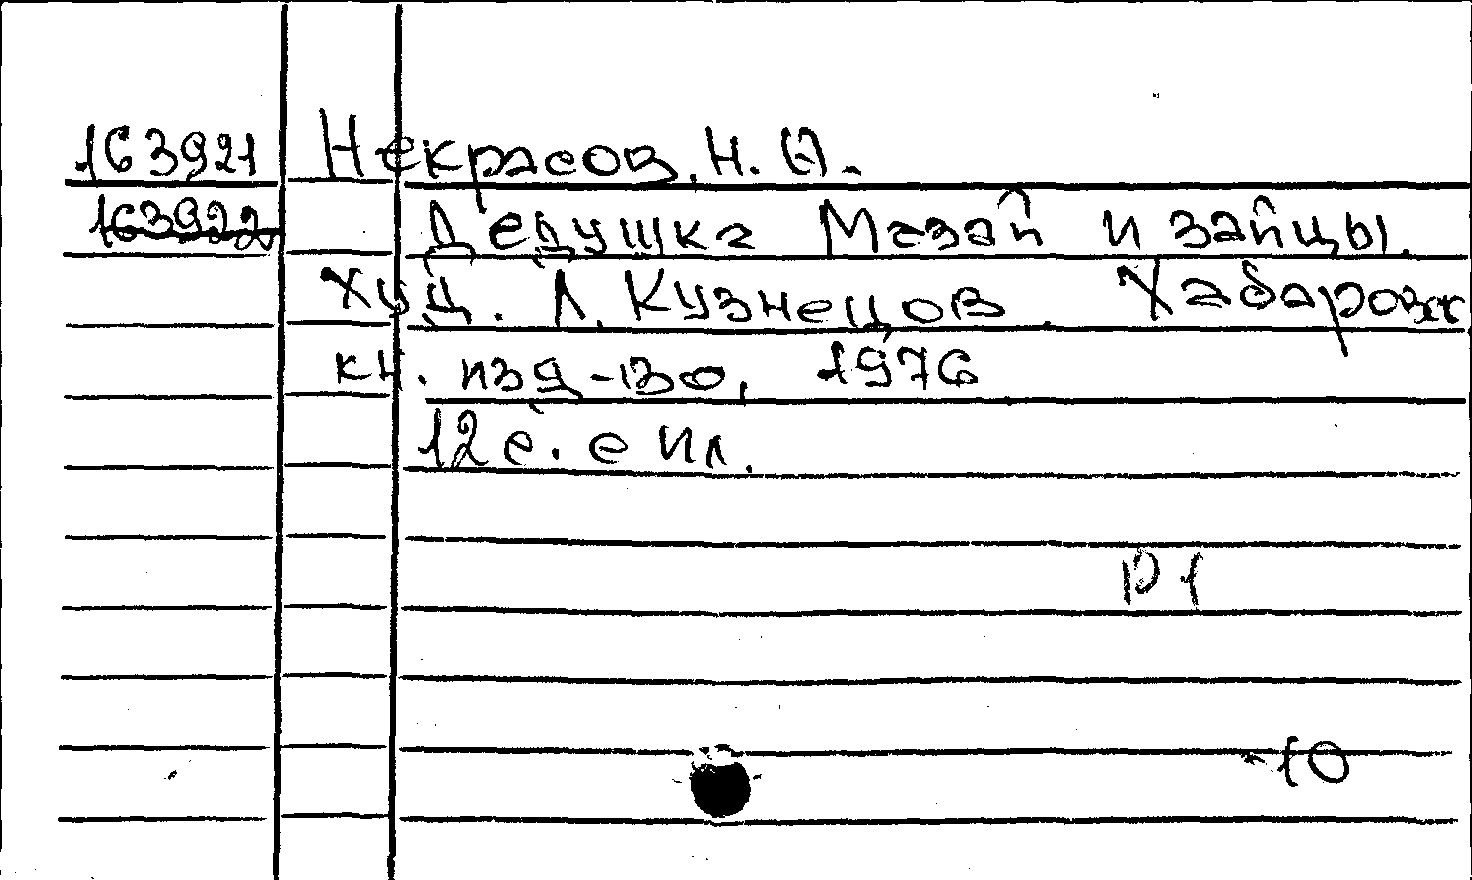 163921 Некрасов, Н. А.
163922 Дедушка Мазай и зайцы.
Худ. Л. Кузнецов. Хабаровск
кн. изд-во, 1976
12 с. с ил.
Р1
-10